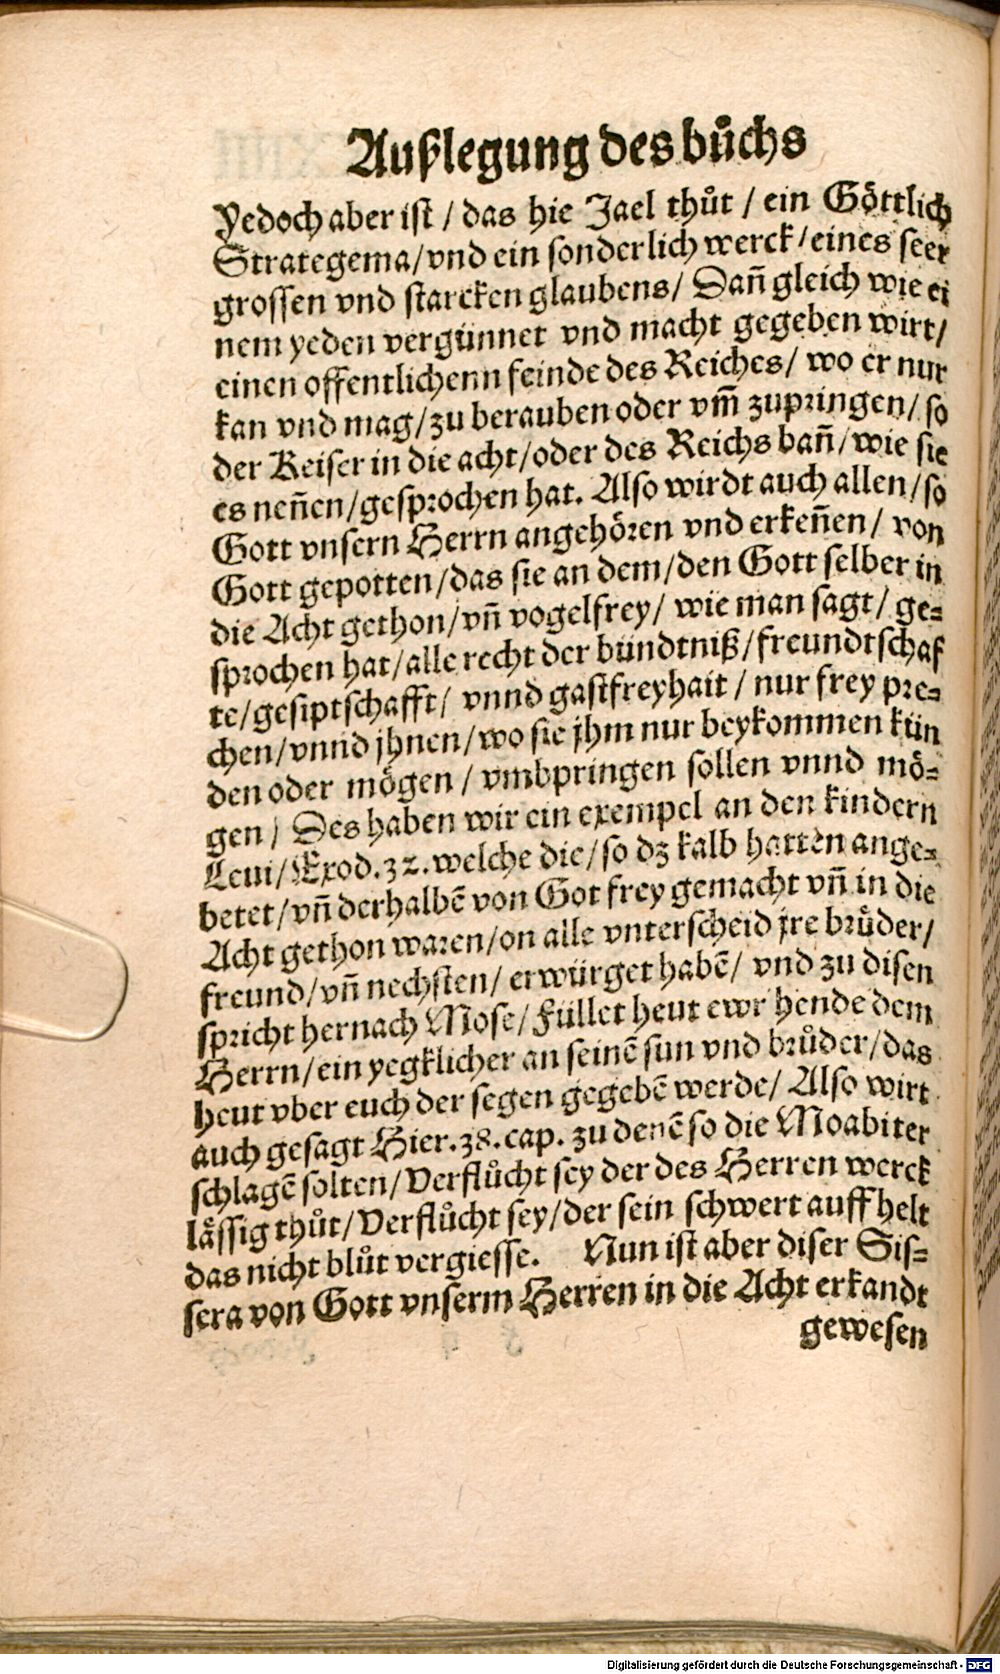 Außlegung des bůchs
Yedoch aber ist / das hie Jael thůt / ein Göttlich
Strategema / vnd ein sonderlich werck / eines seer
grossen vnd starcken glaubens / Dañ gleich wie ei
nem yeden vergünnet vnd macht gegeben wirt /
einen offentlichenn feinde des Reiches / wo er nur
kan vnd mag / zu berauben oder vm̃ zupringen / so
der Keiser in die acht / oder des Reichs bañ / wie sie
es neñen / gesprochen hat. Also wirdt auch allen / so
Gott vnsern Herrn angehören vnd erkeñen / von
Gott gepotten / das sie an dem / den Gott selber in
die Acht gethon / vñ vogelfrey / wie man sagt / ge=
sprochen hat / alle recht der bündtniß / freundtschaf
te / gesiptschafft / vnnd gastfreyhait / nur frey pre=
chen / vnnd jhnen / wo sie jhm nur beykommen kün
den oder mögen / vmbpringen sollen vnnd mö=
gen / Des haben wir ein exempel an den kindern
Leui / Exod. 32. welche die / so dz kalb hatten ange=
betet / vñ derhalbē von Got frey gemacht vñ in die
Acht gethon waren / on alle vnterscheid jre brůder /
freund / vñ nechsten / erwürget habē / vnd zu disen
spricht hernach Mose / Füllet heut ewr hende dem
Herrn / ein yegklicher an seinē sun vnd brůder / das
heut vber euch der segen gegebē werde / Also wirt
auch gesagt Hier. 38. cap. zu denē so die Moabiter
schlagē solten / Verflůcht sey der des Herren werck
lässig thůt / Verflůcht sey / der sein schwert auff helt
das nicht blůt vergiesse. Nun ist aber diser Sis=
sera von Gott vnserm Herren in die Acht erkandt
gewesen
Digitalisierung gefördert durch die Deutsche Forschungsgemeinschaft - DFG